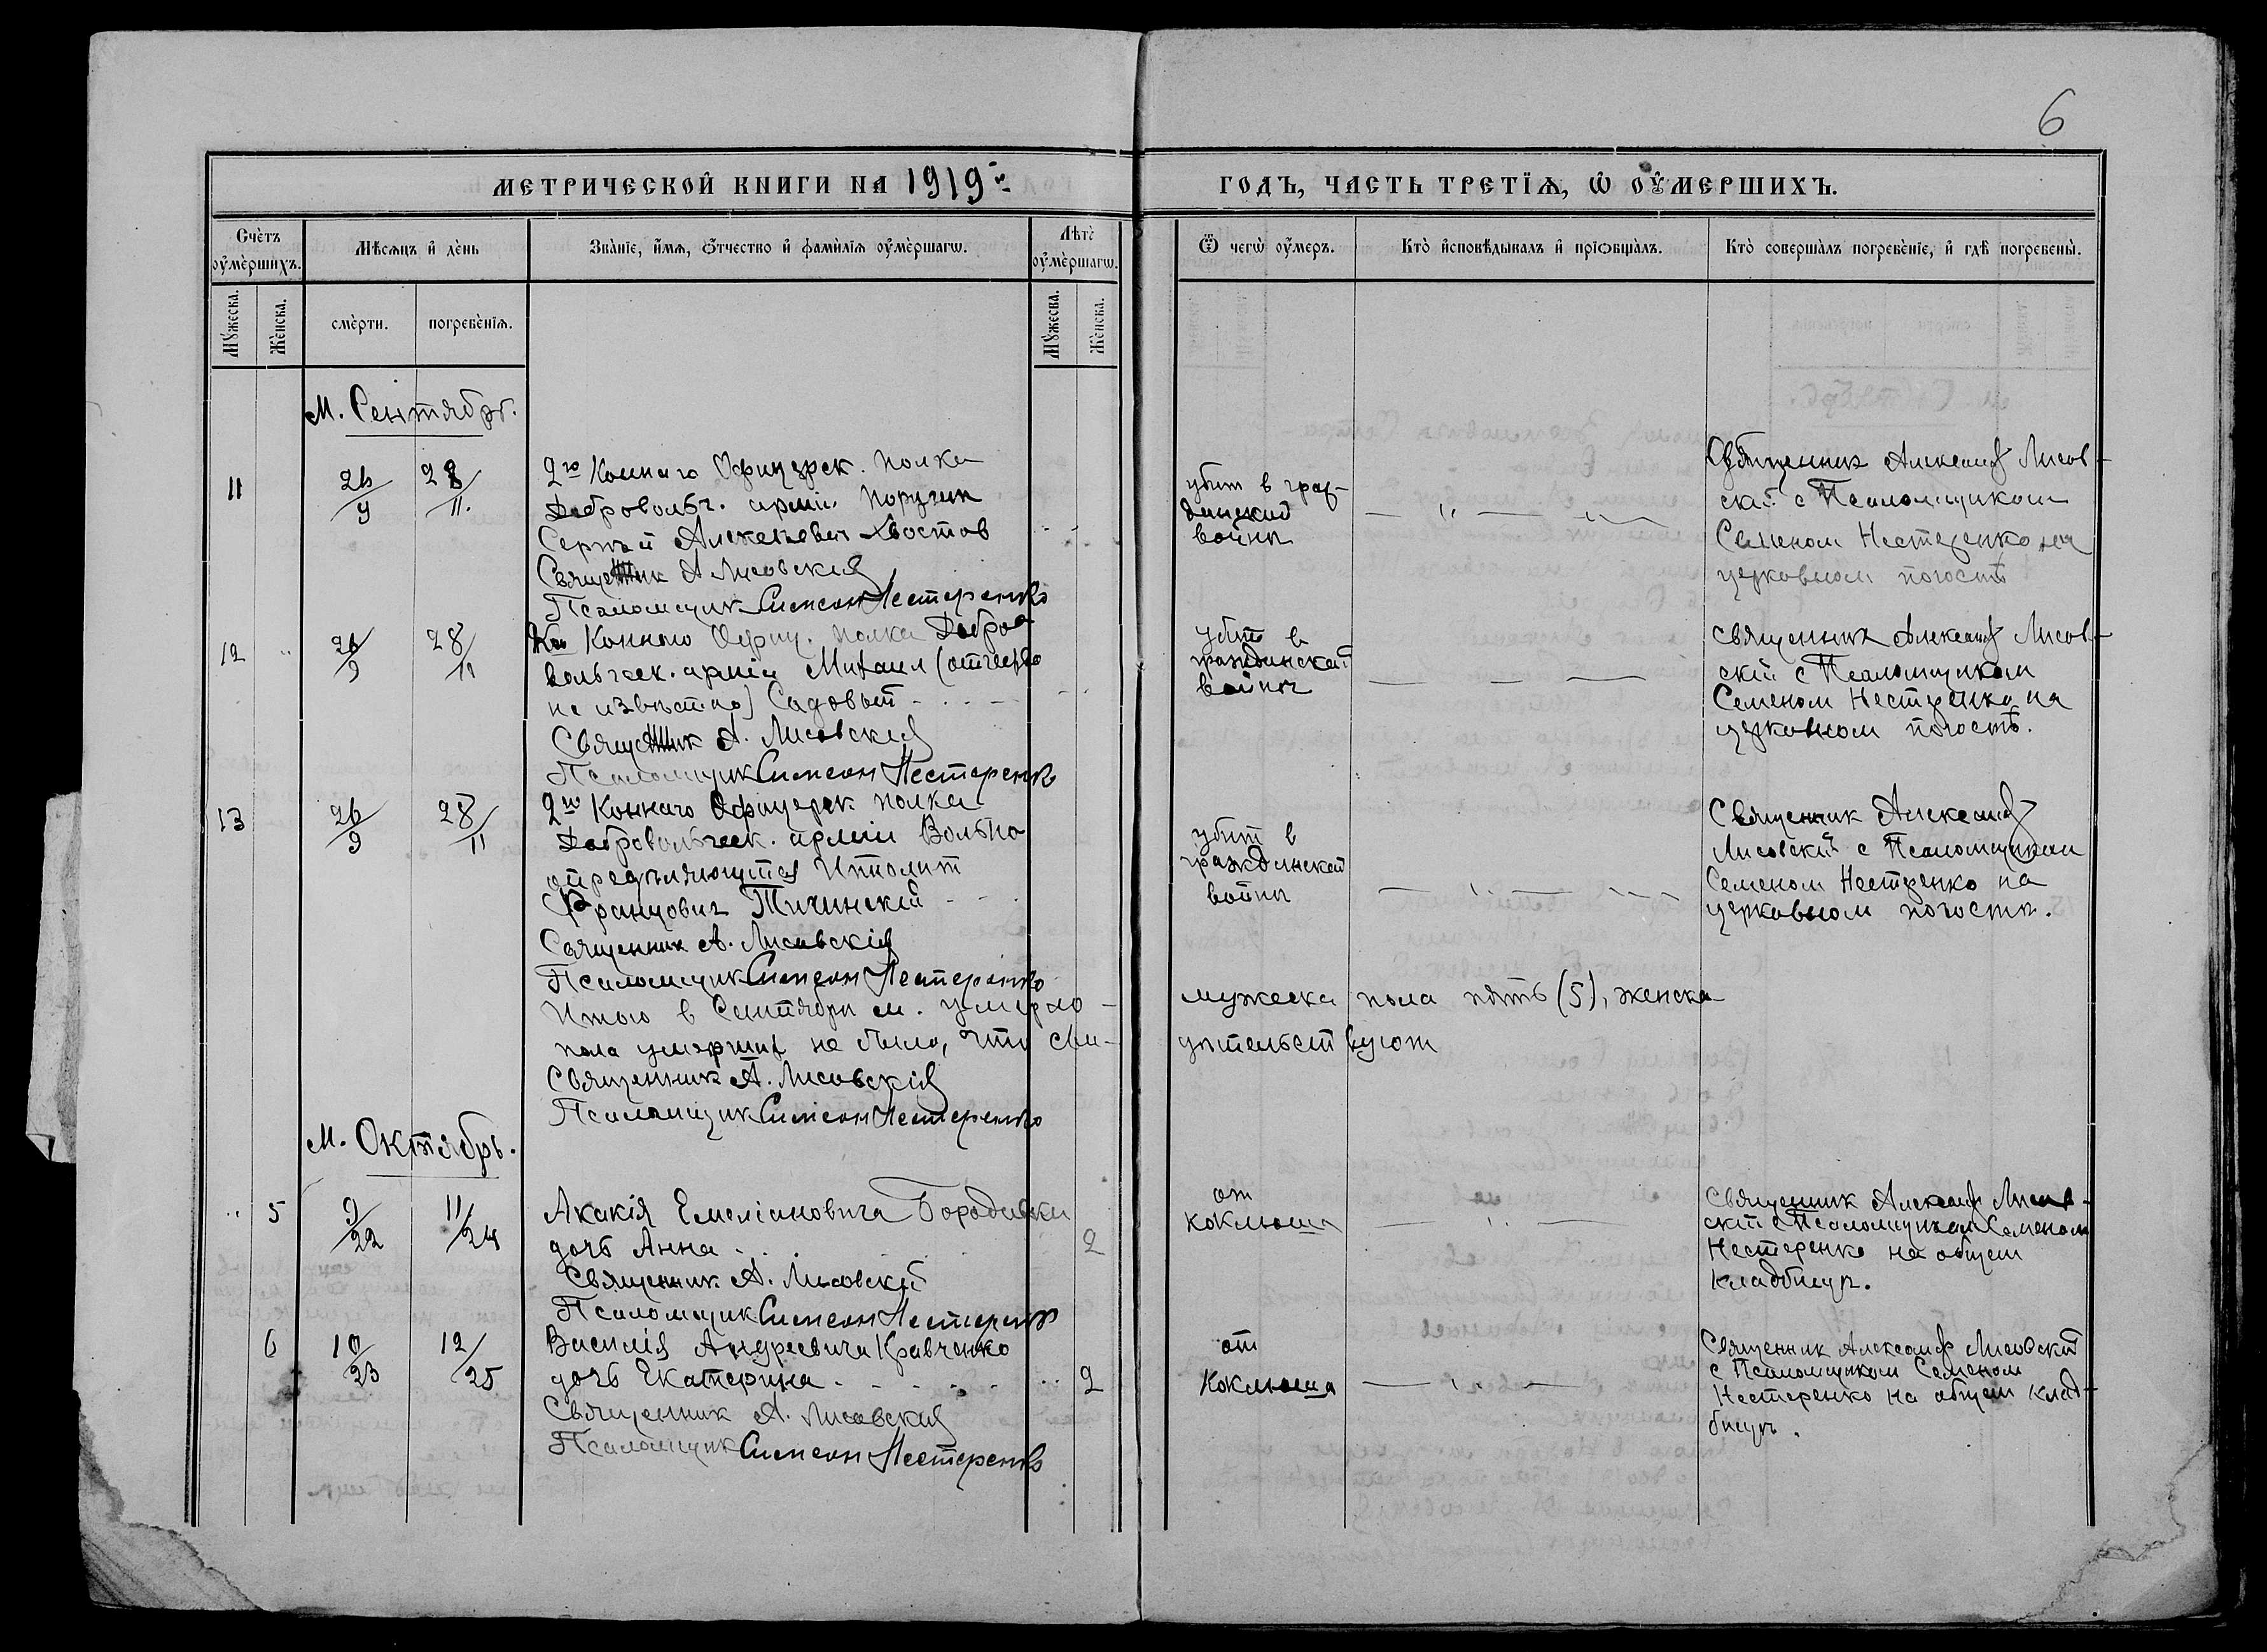 6
МЕТРИЧЕСКОЙ КНИГИ НА 1919й ГОДЪ, ЧАСТЬ ТРЕТІѦ, Ѡ ОУМЕРШИХЪ.
Счетъ оумершихъ.
Мѣсѧцъ и день
Званіе, имѧ, ѿчество и фамиліѧ оумершагѡ.
Лѣтъ оумершагѡ.
Ѿ чегѡ оумеръ.
Кто исповѣдывалъ и пріѡбщалъ.
Кто совершалъ погребеніе, и гдѣ погребены.
Мужеска.
Женска.
смерти.
погребеніѧ.
Мужеска.
Женска.
М. Сентябрь.
11
26/9
28/11.
2го Коннаго Офицерск. полка
Добровольч. арміи Поручик
Сергѣй Алексѣевич Хвостов
Священник А Лисовскій
Псаломщик Симеон Нестеренко
убит в граж-
данской
войнѣ
Священник Александр Лисов-
скій с Псаломщиком
Семеном Нестеренко на
церковном погостѣ
12
26/9
28/11
Конного Офиц. полка Добро-
вольческ. арміи Михаил (отчество
не извѣстно) Садовый
Священник А. Лисовскій
Псаломщик Симеон Нестеренко
убит в
гражданской
войнѣ
Священник Александр Лисов-
скій с Псаломщиком
Семеном Нестеренко на
церковном погостѣ.
13
26/9
28/11
2го Коннаго Офицерск полка
Добровольческ. арміи Вольно
опредѣляющійся Ипполит
Францович Тичинскій
Священник А. Лисовскій
Псаломщик Симеон Нестеренко
убит в
гражданской
войнѣ
Священник Александр
Лисовскій с Псаломщиком
Семеном Нестеренко на
церковном погостѣ.
Итого в Сентябрѣ м. умерло мужеска пола пять (5), женска
пола умерших не было, что сви-дѣтельствуют
Священник А. Лисовскій
Псаломщик Симеон Нестеренко
М. Октябрь.
5
9/22
11/24
Акакія Емеліановича Бородавки
дочь Анна
2
Священник А. Лисовскій
Псаломщик Симеон Нестеренко
от
коклюша
Священник Александр Лисов-
скій с Псаломщиком Семеном
Нестеренко на общем
кладбищѣ.
6
10/23
12/25
Василія Андреевича Кравченко
дочь Екатерина
2
Священник А. Лисовскій
Псаломщик Симеон Нестеренко
от
Коклюша
Священник Александр Лисовский
с Псаломщиком Семеном
Нестеренко на общем клад-
бищѣ.